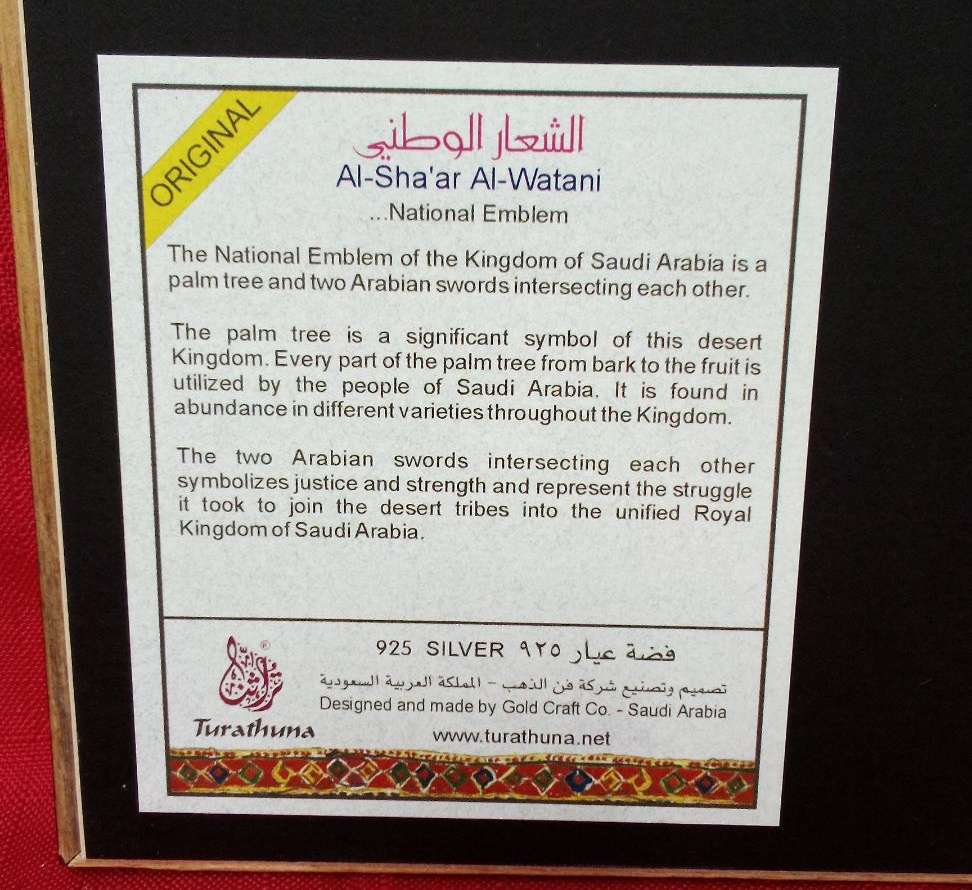 ORIGINAL
الشعار الوطني
Al-Sha'ar Al-Watani
...National Emblem
The National Emblem of the Kingdom of Saudi Arabia is a
palm tree and two Arabian swords intersecting each other.
The palm tree is a significant symbol of this desert
Kingdom. Every part of the palm tree from bark to the fruit is
utilized by the people of Saudi Arabia. It is found in
abundance in different varieties throughout the Kingdom.
The two Arabian swords intersecting each other
symbolizes justice and strength and represent the struggle
it took to join the desert tribes into the unified Royal
Kingdom of Saudi Arabia.
925 SILVER فضة عيار ٩٢٥
تصميم وتصنيع شركة فن الذهب - المملكة العربية السعودية
Designed and made by Gold Craft Co. - Saudi Arabia
www.turathuna.net
تراثنا ®
Turathuna